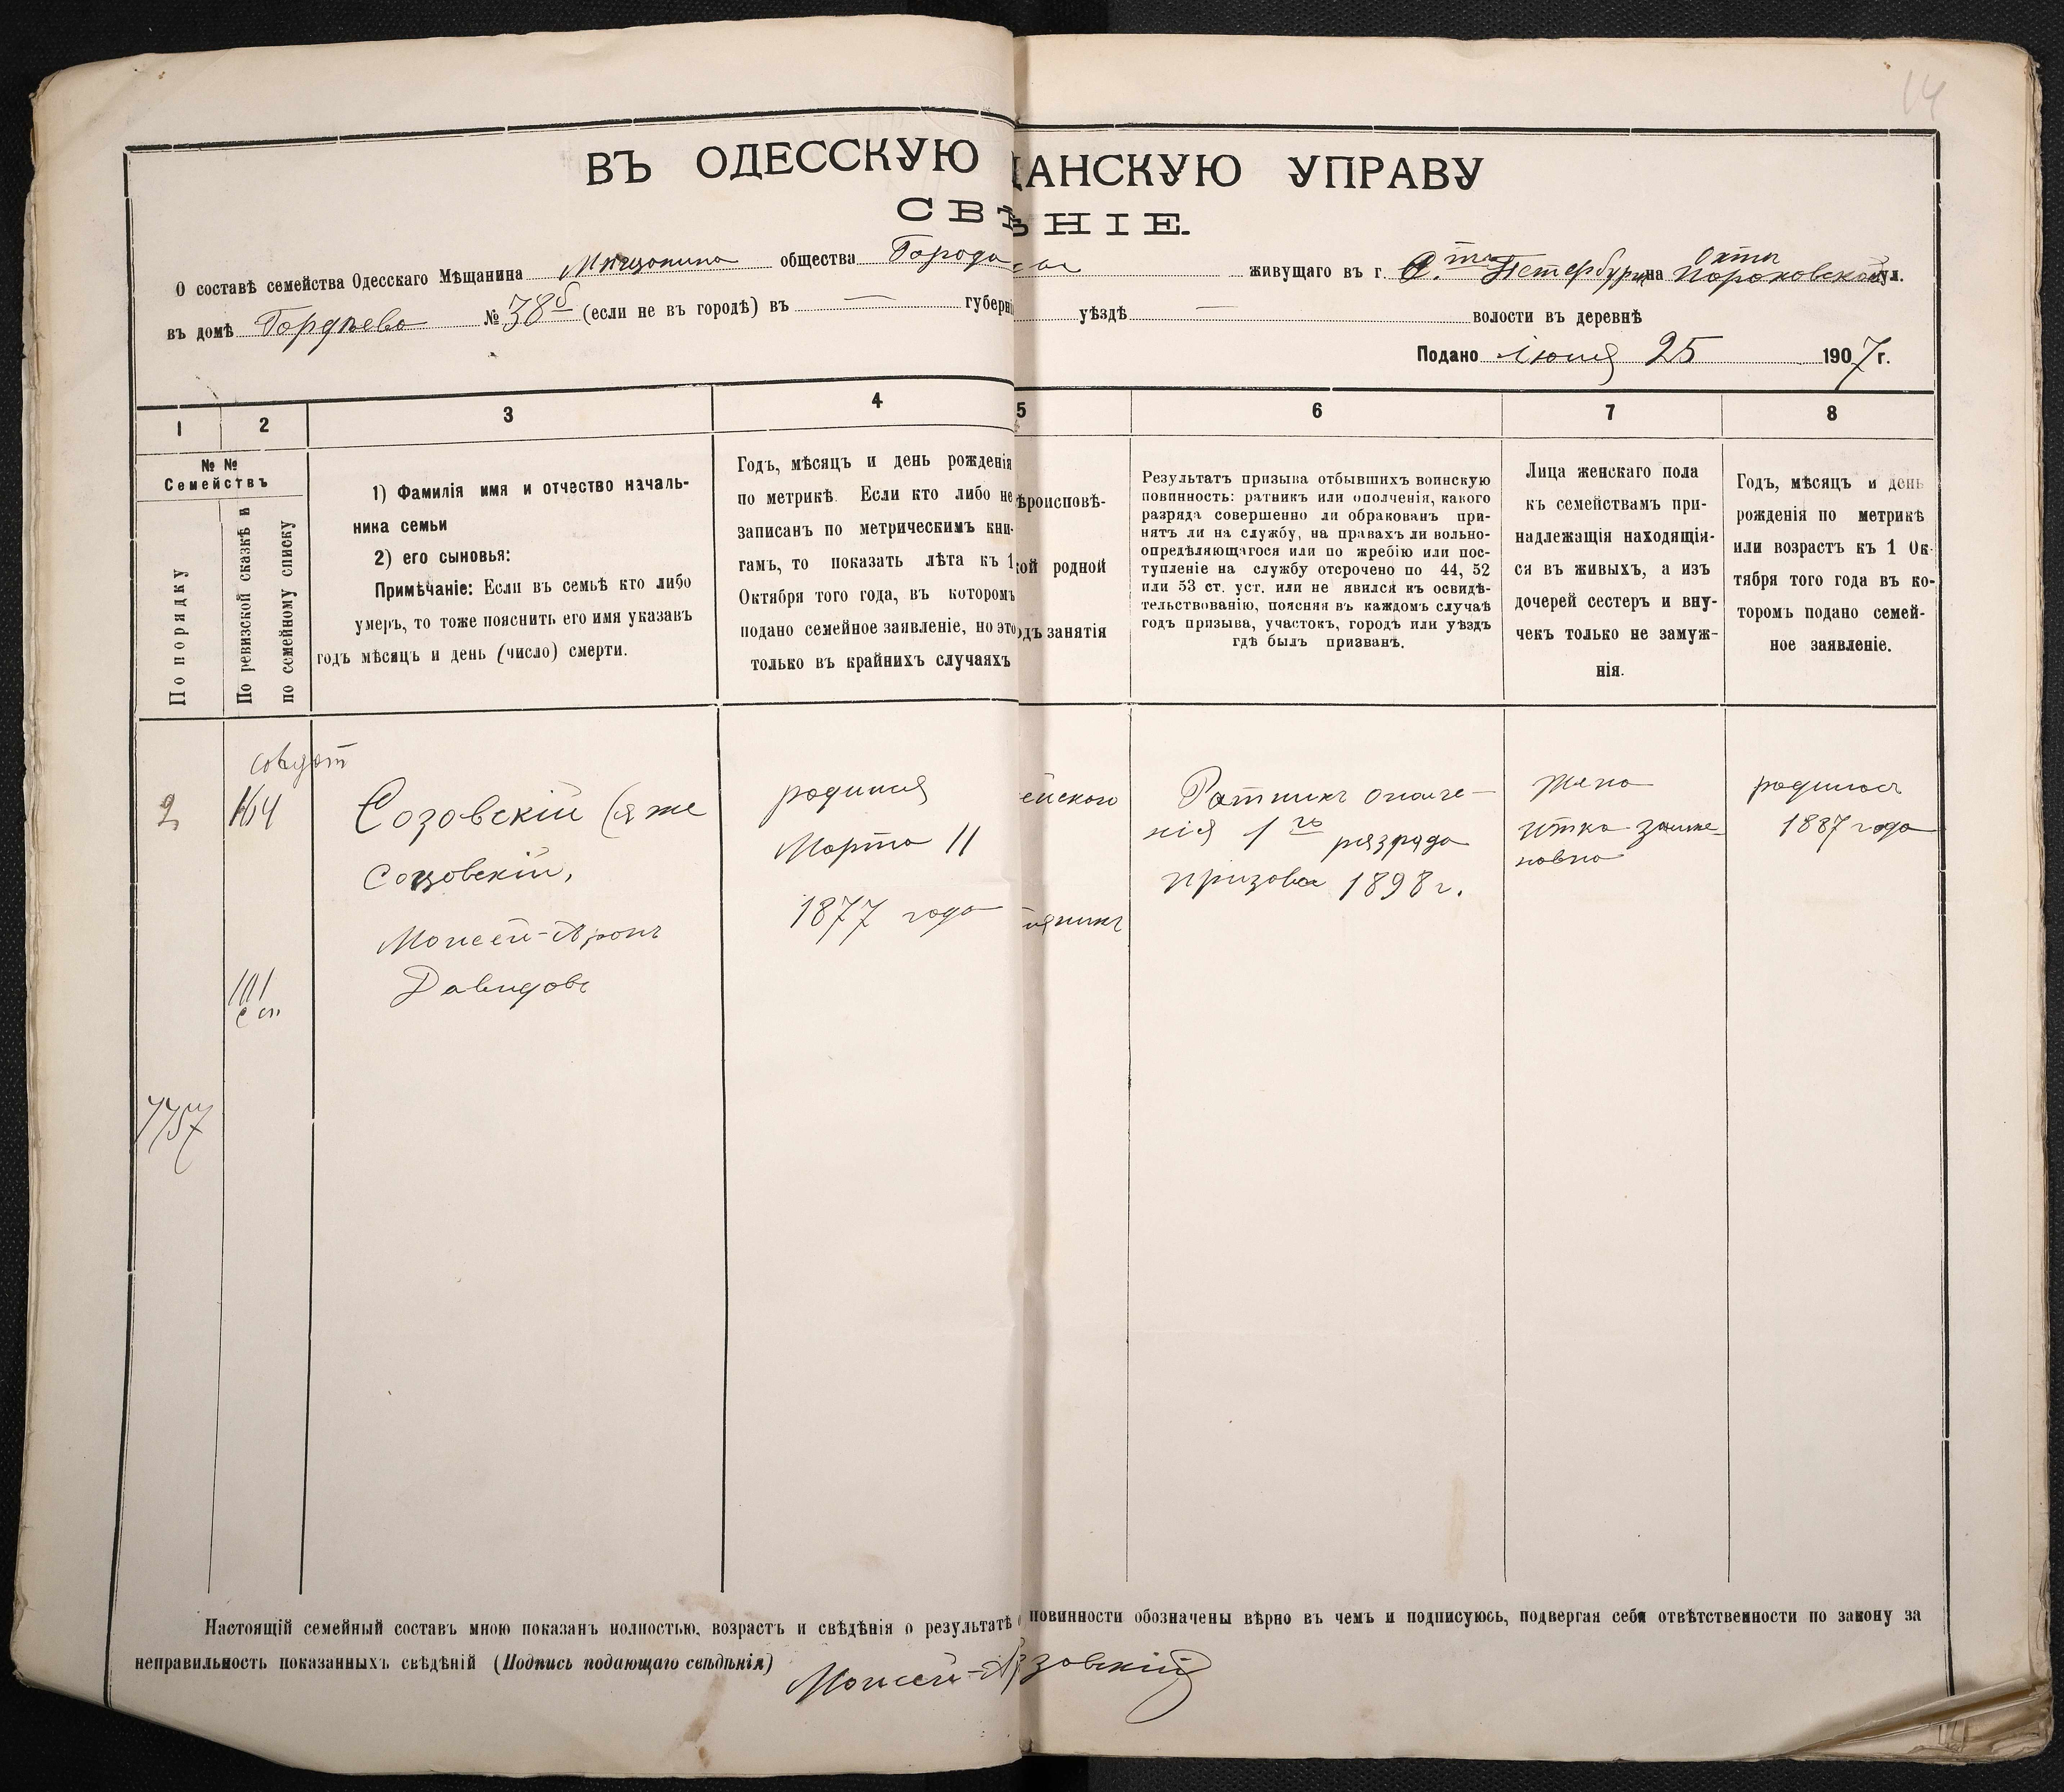 14
ВЪ ОДЕССКУЮ ДАНСКУЮ УПРАВУ
СВѢНІЕ.
О составѣ семейства Одесскаго Мѣщанина Мѣщанина общества Города живущаго въ г. С.тъ Петербургѣ на Охтѣ Пороховской ул.
въ домѣ Гордѣева № 38б (если не въ городѣ) въ — губерні уѣздѣ — волости въ деревнѣ
Подано іюня 25 1907 г.
1 2 3 4 5 6 7 8
№ №
Семействъ
По порядку
По ревизской сказкѣ и
по семейному списку
1) Фамилія имя и отчество началь-
ника семьи
2) его сыновья:
Примѣчаніе: Если въ семьѣ кто либо
умеръ, то тоже пояснить его имя указавъ
годъ мѣсяцъ и день (число) смерти.
Годъ, мѣсяцъ и день рожденія
по метрикѣ. Если кто либо не
записанъ по метрическимъ кни-
гамъ, то показать лѣта къ 1
Октября того года, въ которомъ
подано семейное заявленіе, но это
только въ крайнихъ случаяхъ
ѣроисповѣ-
кой родной
одъ занятія
Результатъ призыва отбывшихъ воинскую
повинность: ратникъ или ополченія, какого
разряда совершенно ли обракованъ при-
нятъ ли на службу, на правахъ ли вольно-
опредѣляющагося или по жребію или пос-
тупленіе на службу отсрочено по 44, 52
или 53 ст. уст. или не явился къ освидѣ-
тельствованію, поясняя въ каждомъ случаѣ
годъ призыва, участокъ, городъ или уѣздъ
гдѣ былъ призванъ.
Лица женскаго пола
къ семействамъ при-
надлежащія находящія-
ся въ живыхъ, а изъ
дочерей сестеръ и вну-
чекъ только не замуж-
нія.
Годъ, мѣсяцъ и день
рожденія по метрикѣ
или возрастъ къ 1 Ок-
тября того года въ ко-
торомъ подано семей-
ное заявленіе.
2
164
101
7757
Созовскій (я же
Соцовскій,
Моисей-Аронъ
Давидовъ
родился
Марта 11
1877 года
ейского
Ратникъ ополче-
нія 1го разряда
призыва 1898 г.
Жена
Итка Залме-
новна
родилась
1887 года
Настоящій семейный составъ мною показанъ полностью, возрастъ и свѣдѣнія о результатѣ повинности обозначены вѣрно въ чемъ и подписуюсь, подвергая себя отвѣтственности по закону за
неправильность показанныхъ свѣдѣній (Подпись подающаго свѣдѣнія) Моисей-А зовскій